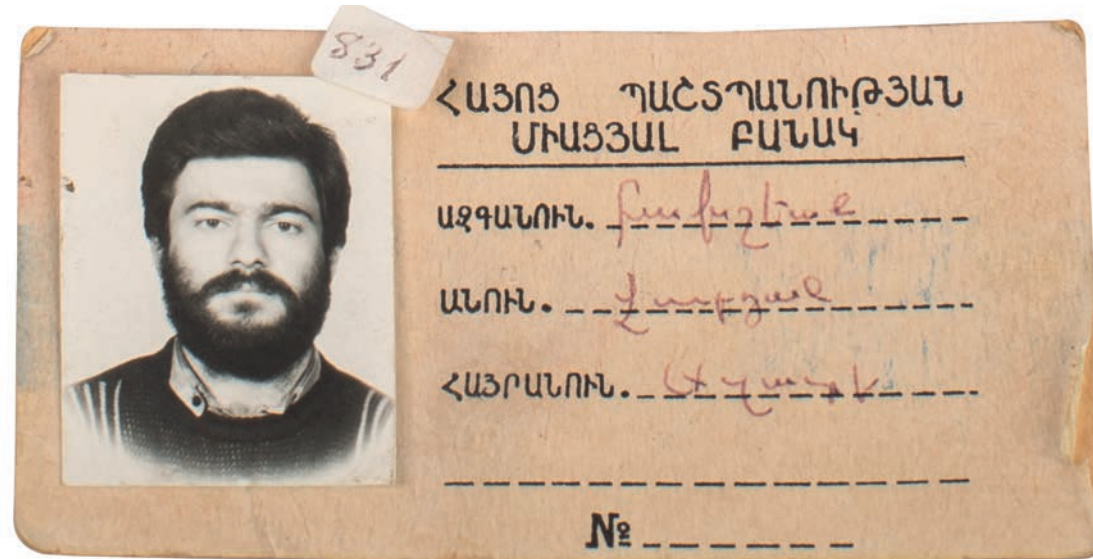 831
ՀԱՅՈՑ ՊԱՇՏՊԱՆՈՒԹՅԱՆ
ՄԻԱՑՅԱԼ ԲԱՆԱԿ
ԱԶԳԱՆՈՒՆ.
ԱՆՈՒՆ.
ՀԱՅՐԱՆՈՒՆ.
№